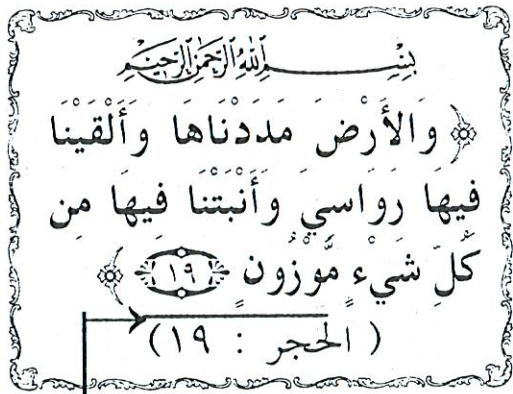 بِسْمِ اللهِ الرَّحْمٰنِ الرَّحِيْمِ
﴿ وَالأَرْضَ مَدَدْنَاهَا وَأَلْقَيْنَا
فِيهَا رَوَاسِيَ وَأَنْبَتْنَا فِيهَا مِن
كُلِّ شَيْءٍ مَّوْزُونٍ (١٩) ﴾
( الحجر : ١٩)